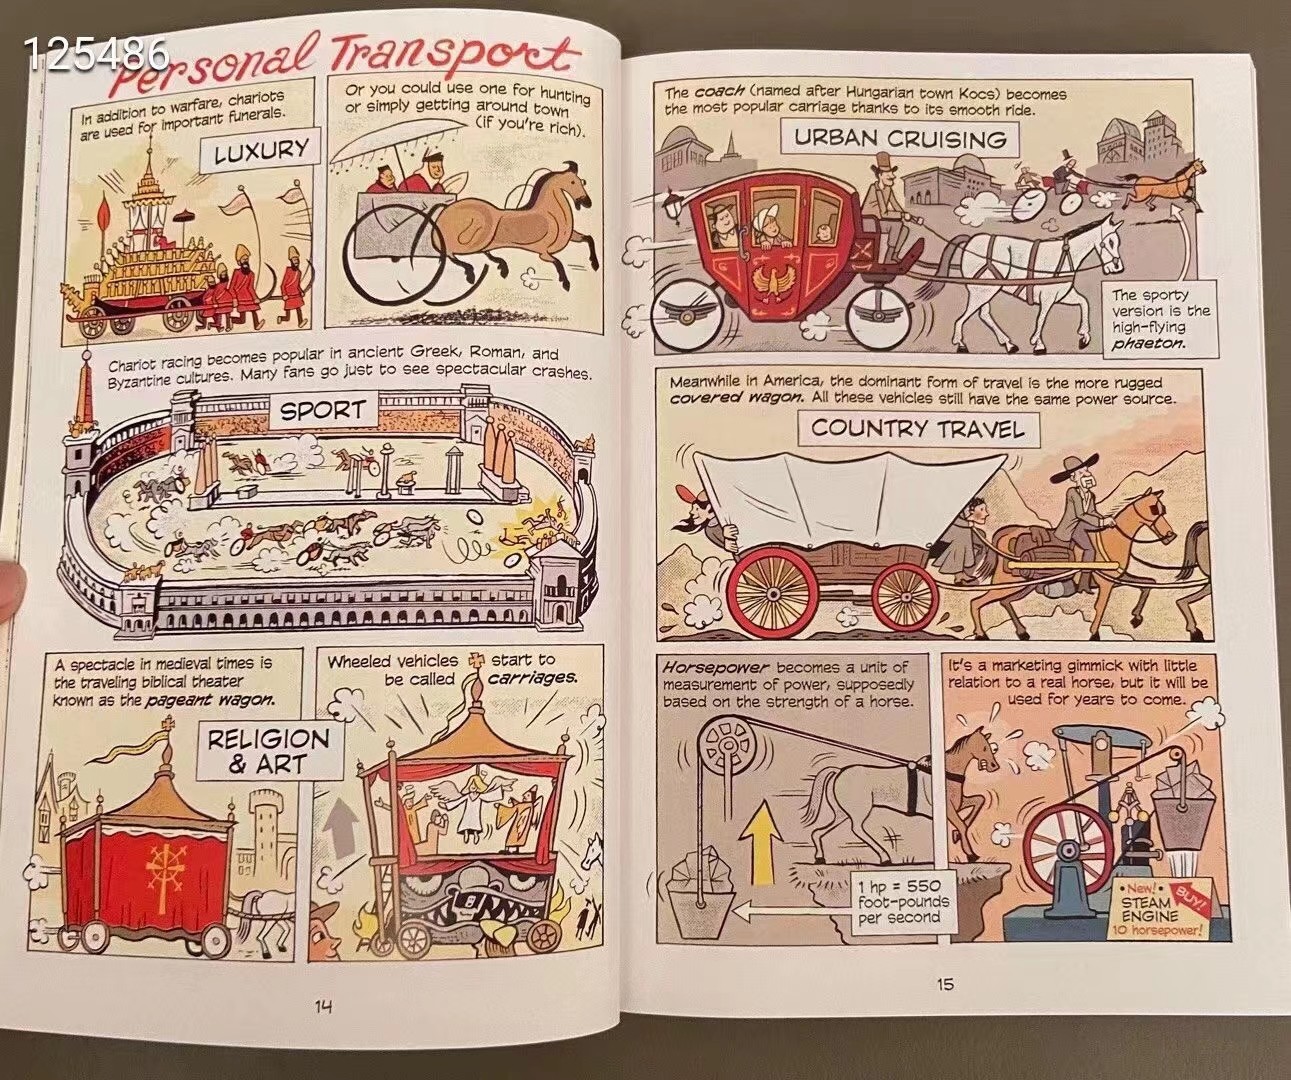 125486
Personal Transport
In addition to warfare, chariots
are used for important funerals.
LUXURY
Or you could use one for hunting
or simply getting around town
(if you're rich).
Chariot racing becomes popular in ancient Greek, Roman, and
Byzantine cultures. Many fans go just to see spectacular crashes.
SPORT
A spectacle in medieval times is
the traveling biblical theater
known as the pageant wagon.
RELIGION
& ART
Wheeled vehicles start to
be called carriages.
14
The coach (named after Hungarian town Kocs) becomes
the most popular carriage thanks to its smooth ride.
URBAN CRUISING
The sporty
version is the
high-flying
phaeton.
Meanwhile in America, the dominant form of travel is the more rugged
covered wagon. All these vehicles still have the same power source.
COUNTRY TRAVEL
Horsepower becomes a unit of
measurement of power, supposedly
based on the strength of a horse.
1 hp = 550
foot-pounds
per second
It's a marketing gimmick with little
relation to a real horse, but it will be
used for years to come.
• New! •
BUY!
STEAM
ENGINE
10 horsepower!
15